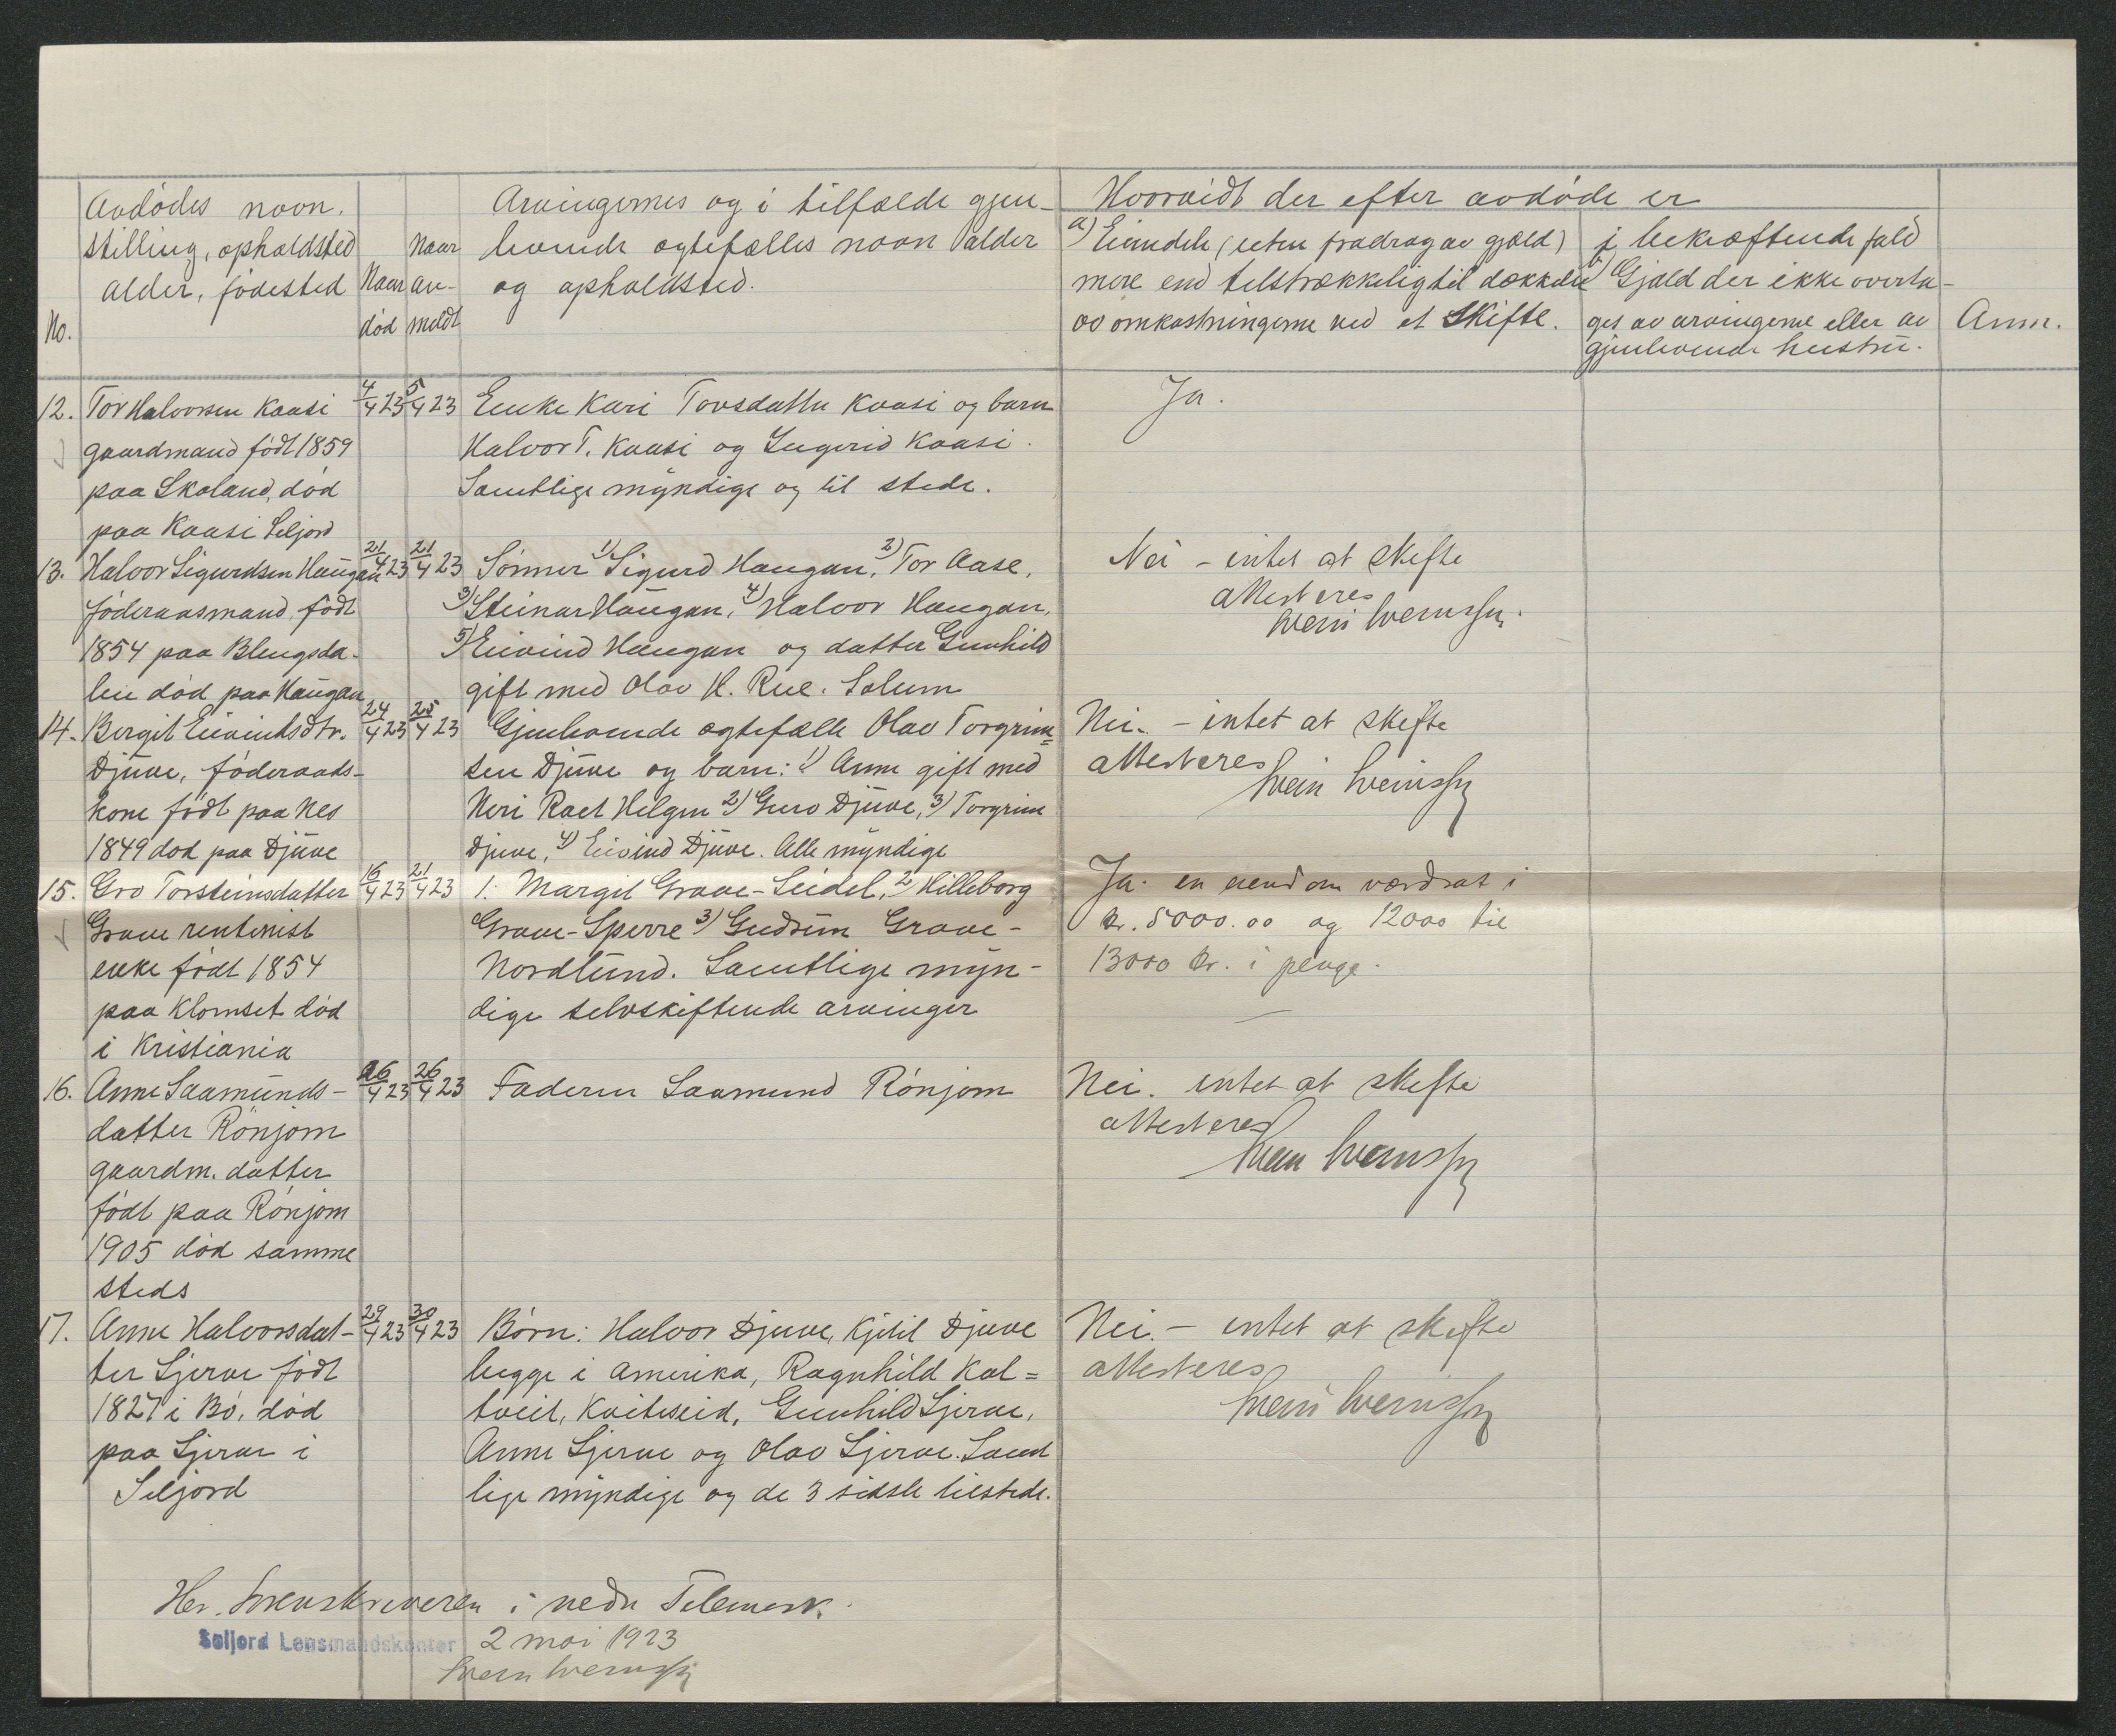 Avdødes navn,
stilling, opholdsted
alder, fødested
No.
Naar
død
Naar
an-
meldt
Arvingernes og i tilfælde gjen-
levende egtefælles navn alder
og opholdsted.
Hvorvidt der efter avdøde er
a) Eiendele (uten fradrag av gjæld)
mere end tilstrækkelig til dækkelse
av omkostningerne ved et Skifte.
i bekræftende fald
b) Gjæld der ikke overta-
ges av arvingerne eller av
gjenlevende hustru.
Anm.
12. Tor Halvorsen Kaasi
gaardmand født 1859
paa Skoland, død
paa Kaasi Seljord
4/4 23
5/4 23
Enke Kari Tovsdatter Kaasi og barn
Halvor T. Kaasi og Ingerid Kaasi.
Samtlige myndige og til stede.
Ja.
13. Halvor Sigurdsen Haugan
føderaasmand, født
1854 paa Blengsda-
len død paa Haugan
21/4 23
21/4 23
Sønner 1) Sigurd Haugan, 2) Tor Aase,
3) Steinar Haugan, 4) Halvor Haugan,
5) Eivind Haugan og datter Gunhild
gift med Olav H. Rue. Solum
Nei – intet at skifte
attesteres
Svein Sveinssen
14. Bergit Eivindsdtr.
Djuve, føderaads-
kone født paa Nes
1849 død paa Djuve
24/4 23
25/4 23
Gjenlevende egtefælle Olav Torgrim-
sen Djuve og barn: 1) Anne gift med
Neri Raet Helgen 2) Guro Djuve, 3) Torgrim
Djuve, 4) Eivind Djuve. Alle myndige
Nei. – intet at skifte
attesteres
Svein Sveinssen
15. Gro Torsteinsdatter
Grave rentenist
enke født 1854
paa Klomset død
i Kristiania
16/4 23
21/4 23
1. Margit Grave-Seidel, 2) Hilleborg
Grave-Sperre 3) Gudrun Grave-
Nordlund. Samtlige myn-
dige selvskiftende arvinger
Ja. en eiendom værdsat i
kr. 5000.00 og 12000 til
13000 kr. i penge.
16. Anne Saamunds-
datter Rønjom
gaardm. datter
født paa Rønjom
1905 død samme
steds
26/4 23
26/4 23
Faderen Saamund Rønjom
Nei. intet at skifte
attesteres
Svein Sveinssen
17. Anne Halvorsdat-
ter Ljerve født
1827 i Bø, død
paa Ljerve i
Seljord
29/4 23
30/4 23
Børn: Halvor Djuve, Kjetil Djuve
begge i Amerika, Ragnhild Kal=
tveit, Kviteseid, Gunhild Ljerve,
Anne Ljerve og Olav Ljerve. Samt
lige myndige og de 3 sidste tilstede.
Nei. – intet at skifte
attesteres
Svein Sveinssen
Hr. Sorenskriveren i nedre Telemark.
Seljord Lensmandskontor 2 mai 1923
Svein Sveinssen